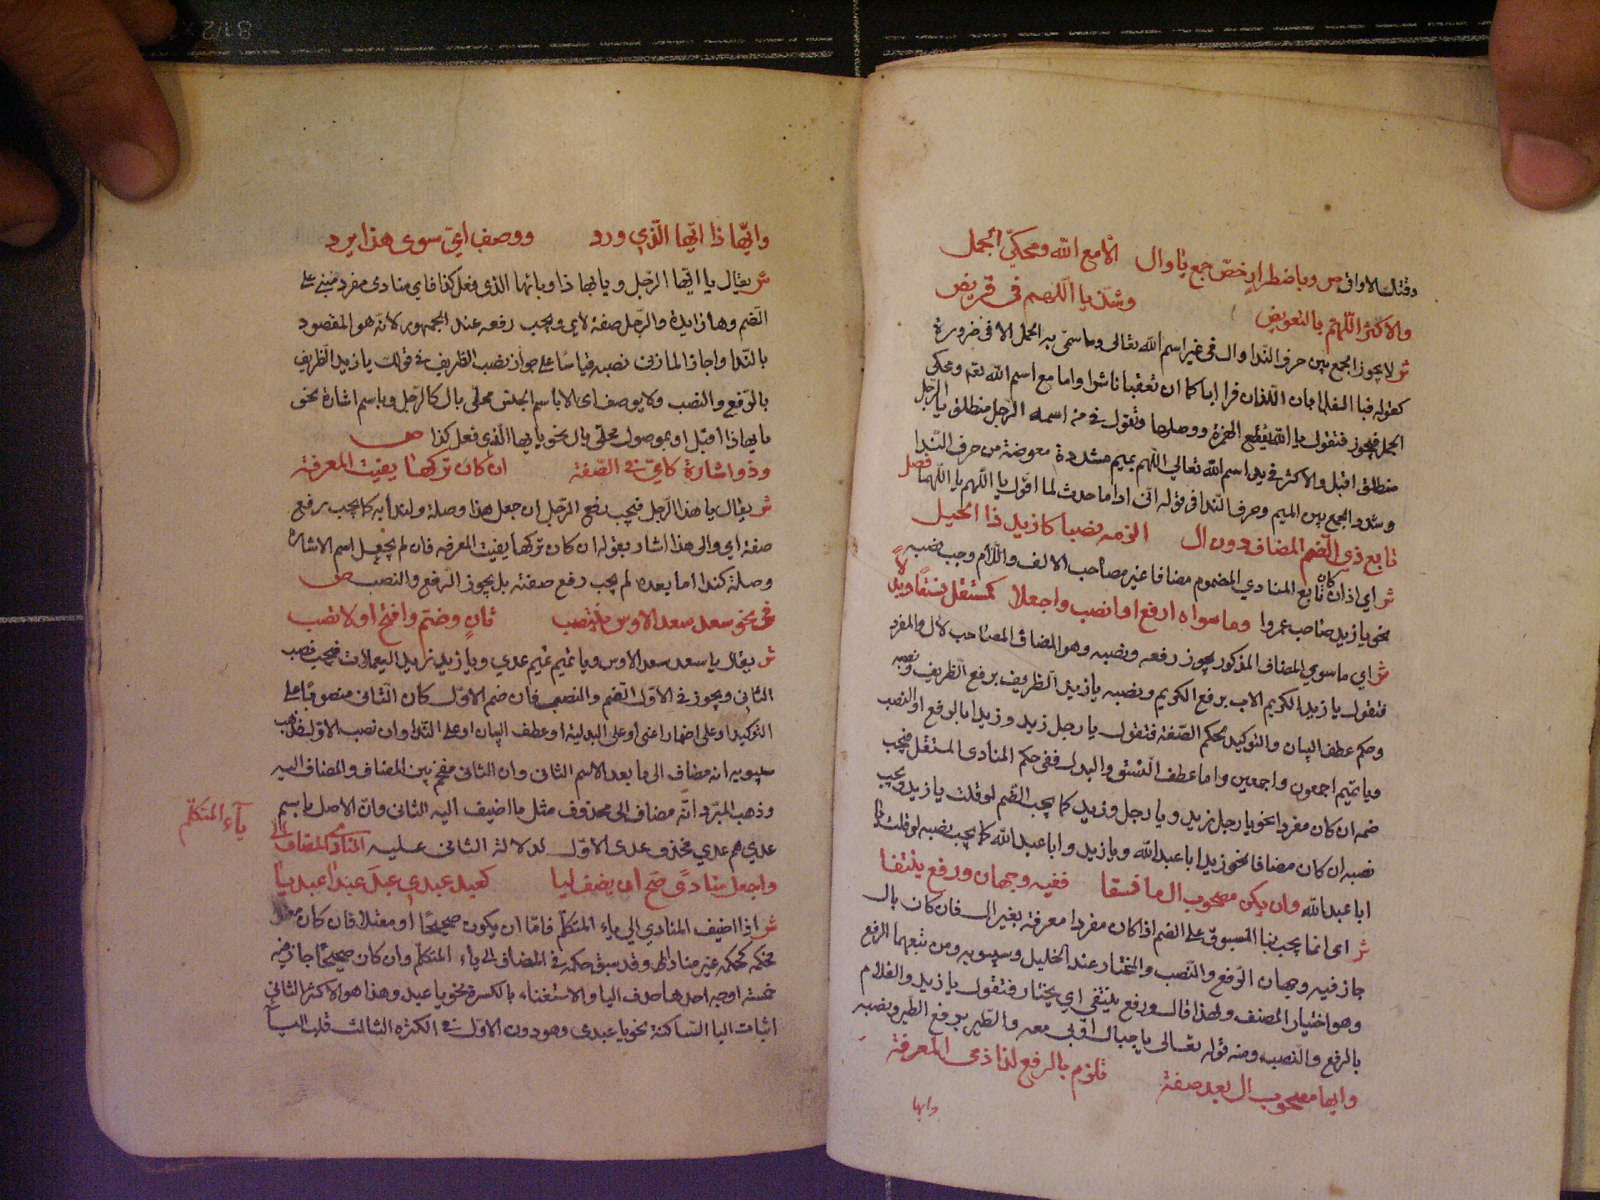 وقتك الاواقي ص وباضطرار خص جمع يا وال الا مع الله ومحكي الجمل
والاكثر اللهم بالتعويض وشذ يا اللهم في قريض
ش لا يجوز الجمع بين حرف الندا وال في غير اسم الله تعالى وما سمي به من الجمل الا في ضرورة
كقوله فيا الغلامان اللذان فرا اياكما ان تعقبانا شرا واما مع اسم الله تعه ومحكي
الجمل فيجوز فتقول يا الله بقطع الهمزة ووصلها وتقول في من اسمه الرجل منطلق يا الرجل
منطلق اقبل والاكثر في ندا اسم الله تعالى اللهم بميم مشددة معوضة من حرف الندا
وشذ الجمع بين الميم وحرف الندا في قوله اني اذا ما حدث لما اقول يا اللهم يا اللهما فصل
تابع ذي الضم المضاف دون ال الزمه نصبا كازيد ذا الحيل
ش اي اذا كان تابع المنادي المضموم مضافا غير مصاحب الالف واللام وجب نصبه
نحو يا زيد صاحب عمرو وما سواه ارفع او انصب واجعلا كمستقل نسقا وبدلا
ش اي ما سوي المضاف المذكور يجوز رفعه ونصبه وهو المضاف المصاحب لال والمفرد
فتقول يا زيد الكريم الاب برفع الكريم ونصبه يا زيد الظريف برفع الظريف ونصبه
وحكم عطف البيان والتوكيد كحكم الصفة فتقول يا رجل زيد وزيدا بالرفع او النصب
ويا تميم اجمعون واجمعين واما عطف النسق والبدل ففي حكم المنادى المستقل فيجب
ضمه ان كان مفردا نحو يا رجل زيد ويا رجل وزيد كما يجب الضم لو قلت يا زيد ويجب
نصبه ان كان مضافا نحو زيد ابا عبد الله ويا زيد وابا عبد الله كما يجب نصبه لو قلت يا
ابا عبد الله وان يكن مصحوب ال ما نسقا ففيه وجهان ورفع ينتقا
ش اي انما يجب بنا المنسوق على الضم اذا كان مفردا معرفة بغير ال فان كان بال
جاز فيه وجهان الرفع والنصب والمختار عند الخليل وسيبويه ومن تبعهما الرفع
وهو اختيار المصنف ولهذا قال ورفع ينتقي اي يختار فتقول يا زيد والغلام
بالرفع والنصب ومنه قوله تعالى يا جبال اوبي معه والطير برفع الطير ونصبه
وايها مصحوب ال بعد صفة تلزم بالرفع لذا ذي المعرفة
وايها
وايهاذا ايها الذي ورد ووصف اي سوى هذا يرد
ش يقال يا ايها الرجل ويا ايهاذا ويا ايها الذي فعل كذا فاي منادى مفرد مبني على
الضم وها زايدة والرجل صفة لاي ويجب رفعه عند الجمهور لانه هو المقصود
بالندا واجاز المازني نصبه قياسا على جواز نصب الظريف في قولك يا زيد الظريف
بالرفع والنصب ولا يوصف اي الا باسم الجنس محلى بال كالرجل وباسم اشارة نحو
يا ايهاذا اقبل او بموصول محلى بال نحو يا ايها الذي فعل كذا ص
وذو اشارة كاي في الصفة ان كان تركها يفيت المعرفة
ش يقال يا هذا الرجل فيجب رفع الرجل ان جعل هذا وصلة لندايه كما يجب رفع
صفة اي والى هذا اشار بقوله ان كان تركها يفيت المعرفه فان لم يجعل اسم الاشارة
وصلة لندا ما بعده لم يجب رفع صفته بل يجوز الرفع والنصب ص
في نحو سعد سعد الاوس ينتصب ثان وضم وافتح اولا تصب
ش يقال يا سعد سعد الاوس ويا تيم تيم عدي ويا زيد زيد اليعملات فيجب نصب
الثاني ويجوز في الاول الضم والنصب فان ضم الاول كان الثاني منصوبا على
التوكيد او على اضمار اعني او على البدلية او عطف البيان او على الندا وان نصب الاول فذهب
سيبويه انه مضاف الى ما بعد الاسم الثاني وان الثاني مقحم بين المضاف والمضاف اليه
وذهب المبرد انه مضاف الى محذوف مثل ما اضيف اليه الثاني وان الاصل يا تيم
عدي تيم عدي فحذف عدي الاول لدلالة الثاني عليه المنادى المضاف الى
ياء المتكلم
واجعل منادى صح ان يضف ليا كعبد عبدي عبد عبدا عبديا
ش اذا اضيف المنادي الي ياء المتكلم فاما ان يكون صحيحا او معتلا فان كان معتلا
فحكمه كحكمه غير منادى وقد سبق حكمه في المضاف الى ياء المتكلم وان كان صحيحا جاز فيه
خمسة اوجه احدها حذف اليا والاستغناء بالكسرة نحو يا عبد وهذا هو الاكثر الثاني
اثبات اليا الساكنة نحو يا عبدي وهو دون الاول في الكثرة الثالث قلب اليا